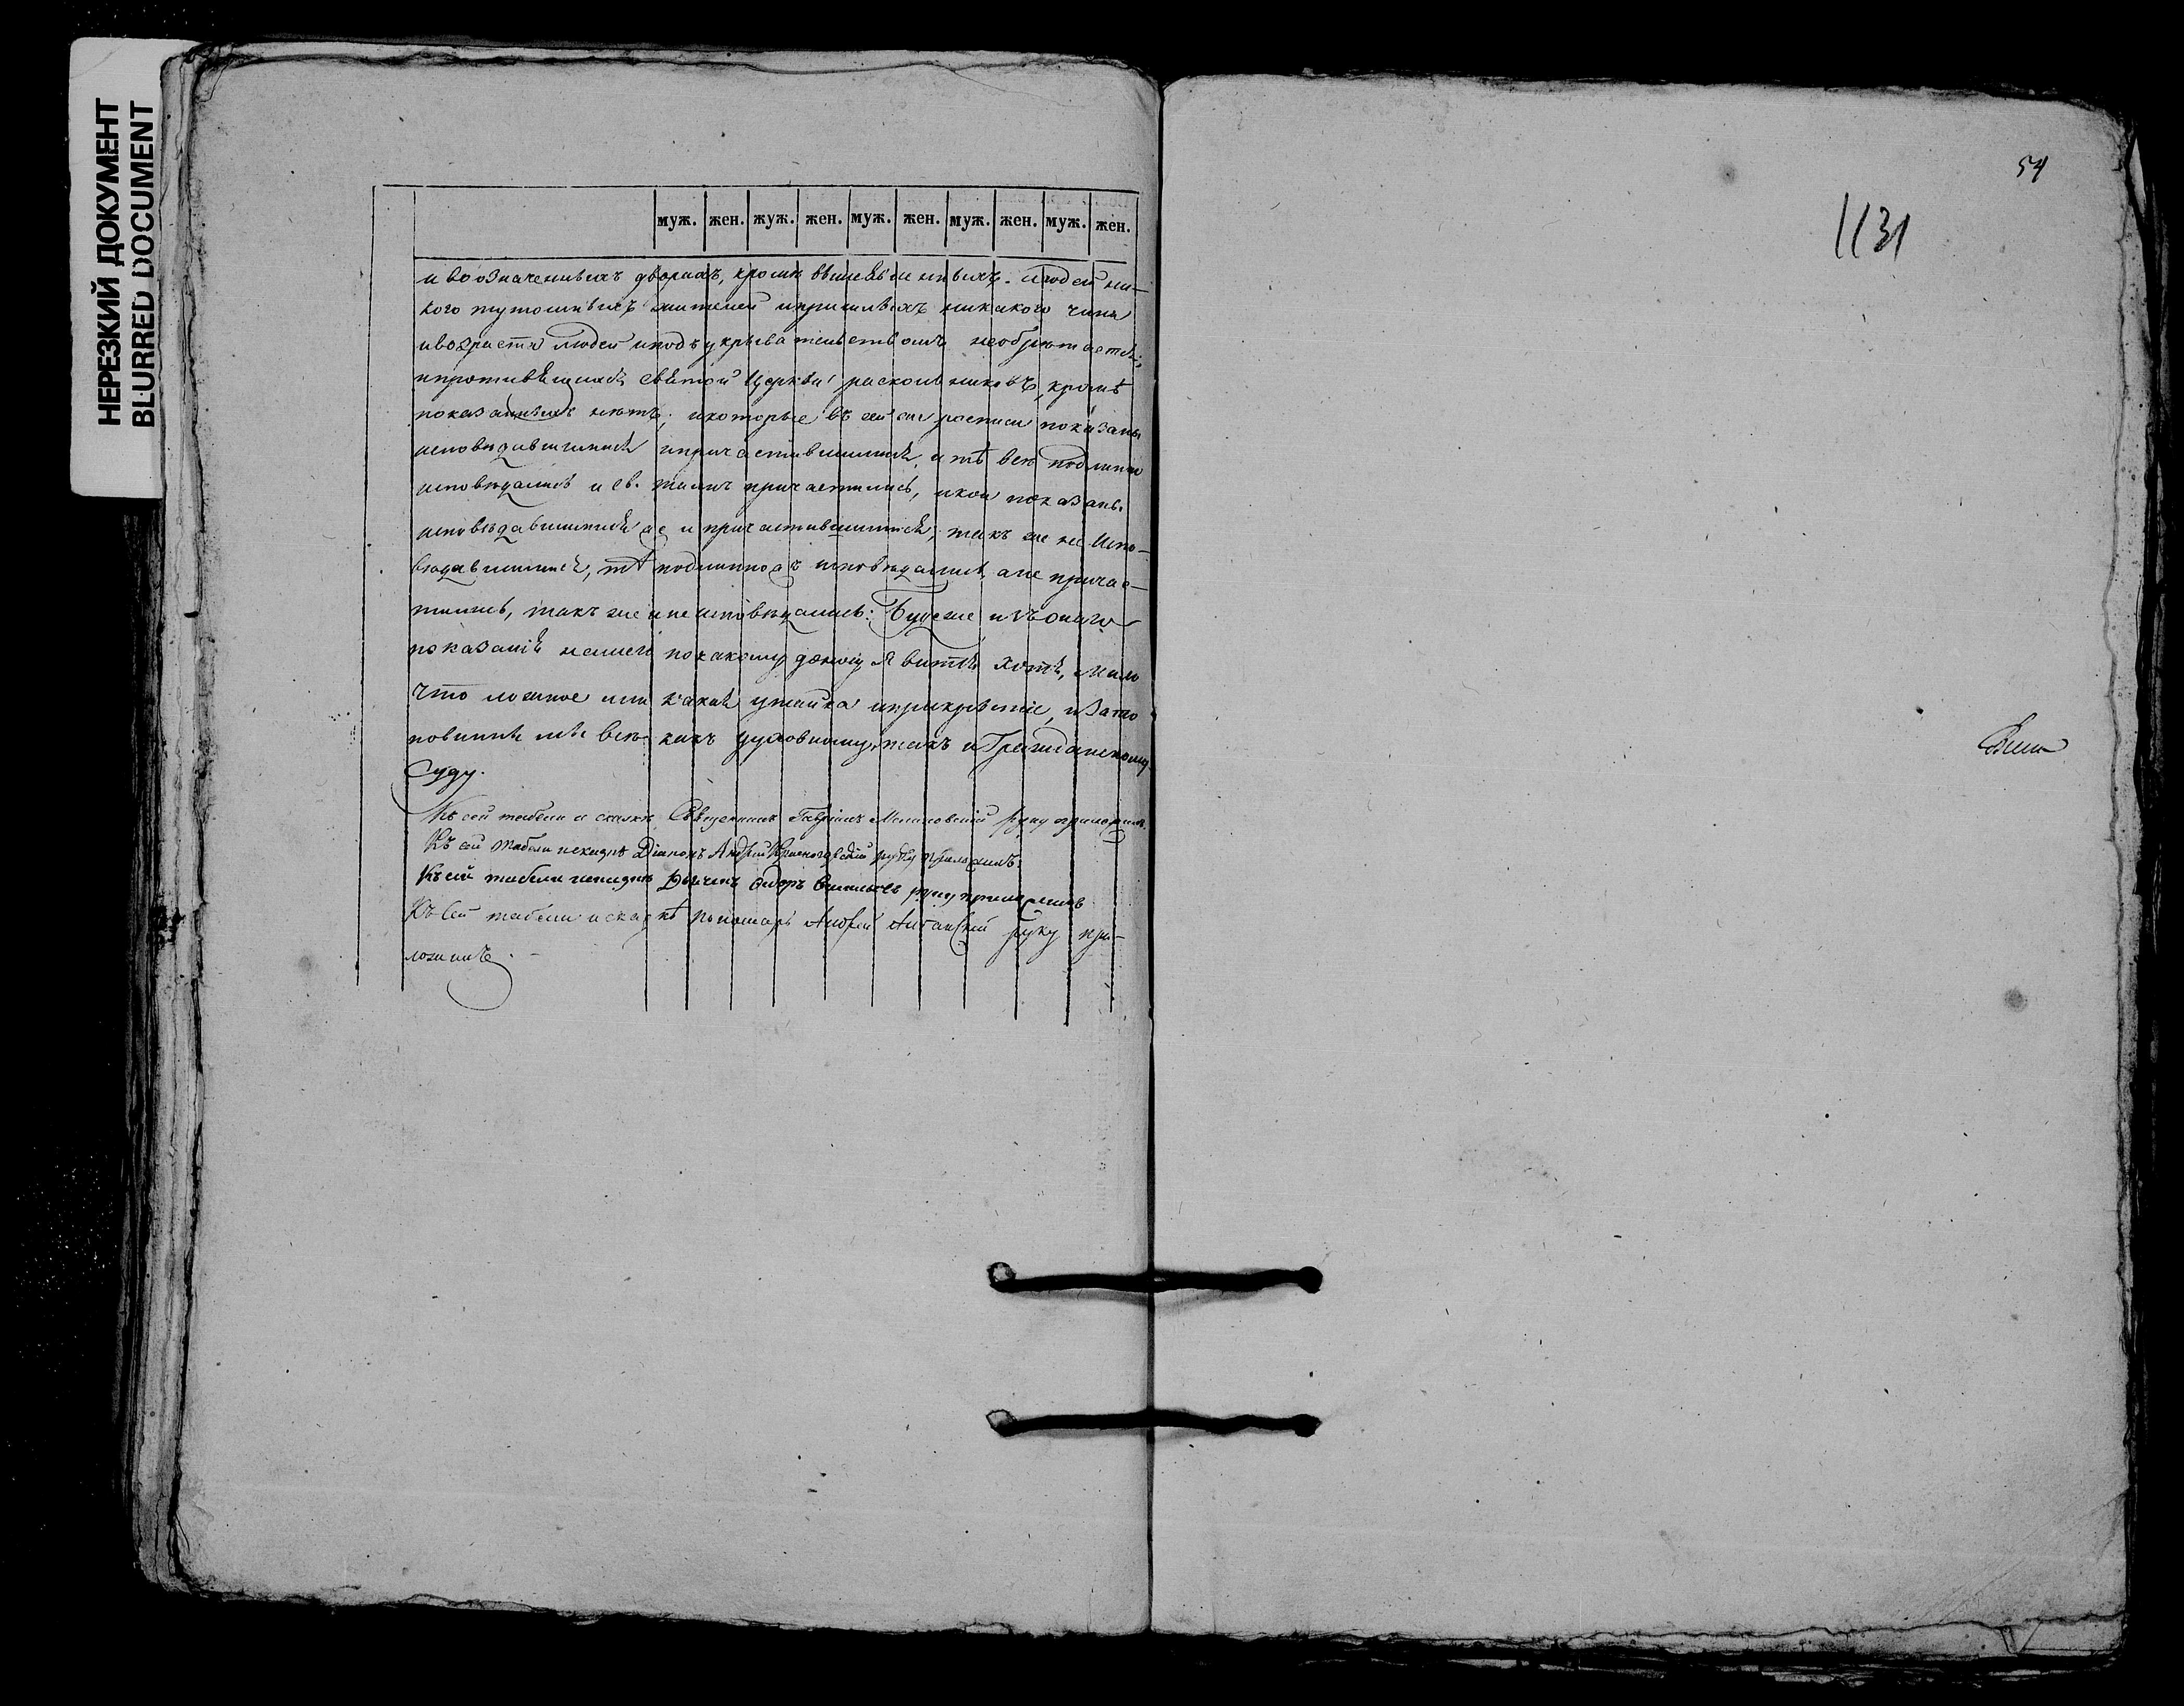 НЕРЕЗКИЙ ДОКУМЕНТ
BLURRED DOCUMENT
муж. жен. жуж. жен. муж. жен. муж. жен. муж. жен.
и во означенныхъ дворахъ, кромѣ вышеявленныхъ людей ни-
кого тутошныхъ жителей и пришлыхъ никакого чина
и возраста людей и подъ укрывательствомъ необрѣтается;
и противящихся святой Церкви раскольниковъ, кромѣ
показанныхъ нѣтъ; и которые въ сей же росписи показаны
исповѣдавшимися и причастившимися, и тѣ всѣ подлинно
исповѣдались и св. таинъ причастились, и кои показаны
исповѣдавшимися а не причастившимися, такъ же не испо-
вѣдавшимися, тѣ подлинно исповѣдались, а не причас-
тились, такъ же и не исповѣдались: Буде же изъ онаго
показанія нашего по какому доносу явится хотя, мало
что ложное или какая утайка и прикрытіе, и за то
повинны мы всѣ какъ духовному, такъ и Гражданскому
Суду.
Къ сей табели и сказкѣ Священникъ Гавріилъ руку приложилъ.
Къ сей табели и сказкѣ Діаконъ Андрей руку приложилъ.
Къ сей табели и сказкѣ Дьячекъ руку приложилъ
Къ сей табели и сказкѣ пономарь Андрей руку при-
ложилъ.
54
1131